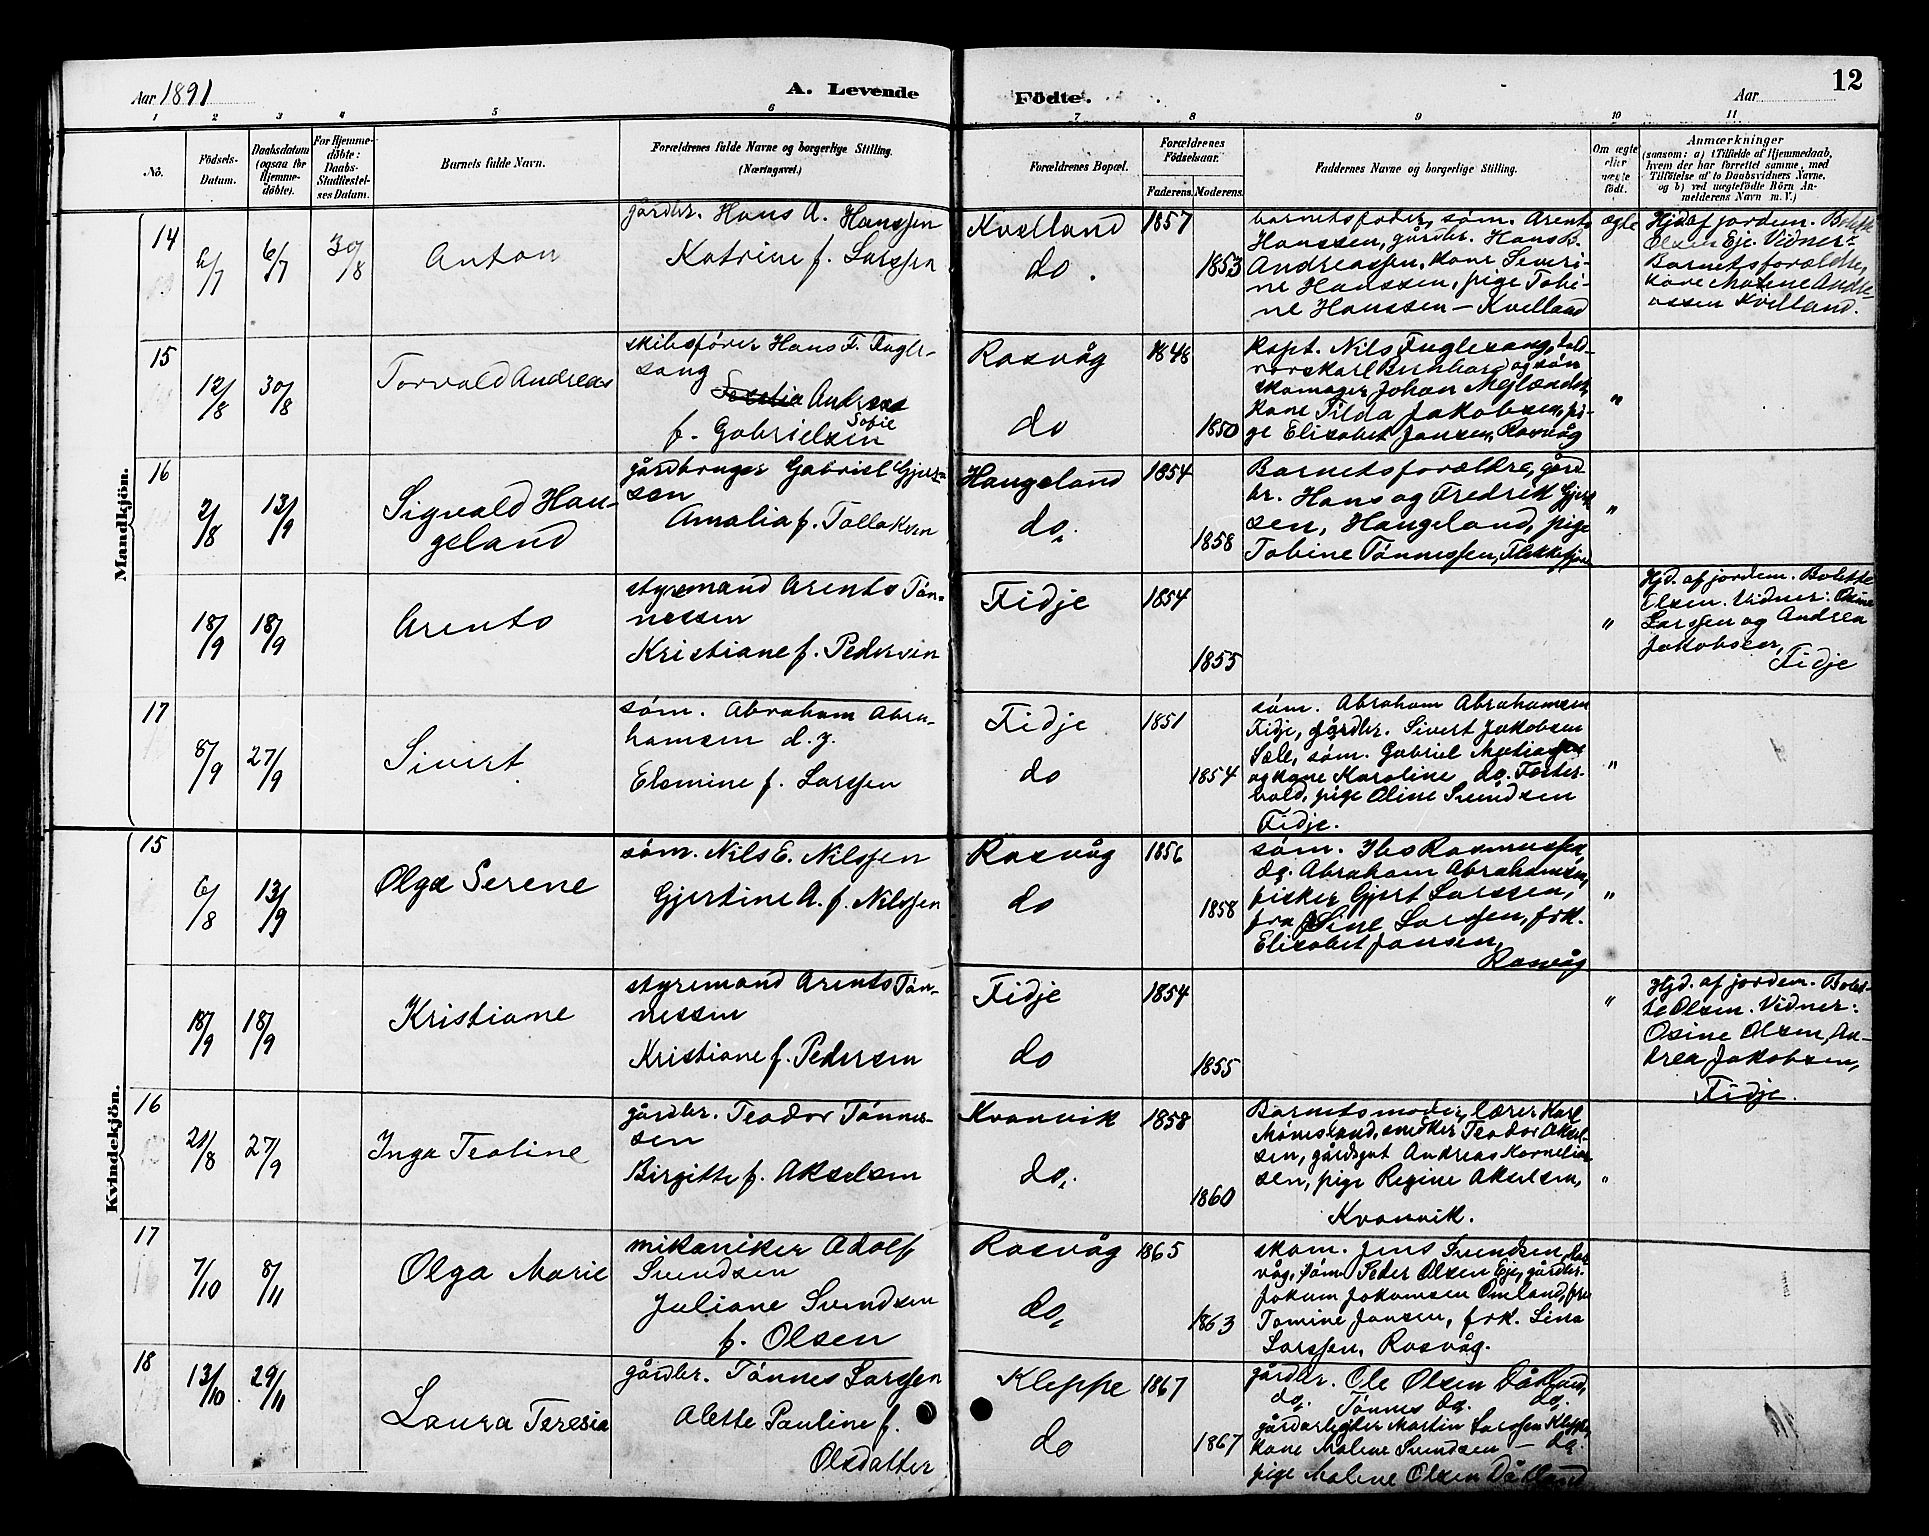 Aar 1891
A. Levende
Födte.
Aar
12
1 2 3 4 5 6 7 8 9 10 11
No.
Födsels-
Datum.
Daabsdatum
(ogsaa for
Hjemme-
döbte).
For Hjemme-
döbte:
Daabs-
Stadfæstel-
ses Datum.
Barnets fulde Navn.
Forældrenes fulde Navne og borgerlige Stilling.
(Næringsvei.)
Forældrenes Bopæl.
Forældrenes
Födselsaar.
Faderens.
Moderens.
Faddernes Navne og borgerlige Stilling.
Om ægte
eller
uægte
födt.
Anmærkninger
(saasom: a) i Tilfælde af Hjemmedaab,
hvem der har forrettet samme, med
Tilföielse af to Daabsvidners Navne,
og b) ved uægtefödte Börn An-
melderens Navn m. V.)
Mandkjön.
14
6/7
30/8
Anton
gårdbr. Hans A. Hanssen
Katrine f. Larssen
Kvelland
do.
1857
1853
barnetsfader, søm. Arent
Hanssen, gårdbr. Hans B.
Andreassen, kone Severi-
ne Hanssen, pige Tobi-
ne Hanssen - Kvelland
ægte
Hjd. af jordem. Bolette
Olsen Eje. Vidner:
Barnetsforældre,
kone Malene Andre-
assen Kvelland.
15
12/8
30/8
Torvald Andreas
skibsfører Hans F. Fugle-
sang
Andrea
Sofie
f. Gabrielsen
Rasvåg
do
1848
1850
kapt. Nils Fuglesang, hald-
Bernhard og søn
skomager Johan Mejlænder,
kone Tilda Jakobsen, pi-
ge Elisabet Jansen, Rasvåg
"
16
2/8
13/9
Sigvald Hau-
geland
gårdbruger Gabriel Gjert-
sen
Amalia f. Tollaksen
Haugeland
do.
1854
1858
Barnetsforældre, gård-
br. Hans og Fredrik Gjert-
sen, Haugeland, pige
Tobine Tønnessen, Flekkefjord
"
18/9
18/9
Arento
styremand Arento Tøn-
nessen
Kristiane f. Pedersen
Fidje
1854
1855
"
Hjd. af jordem. Bolette
Olsen. Vidner: Osine
Larssen og Andrea
Jakobsen,
Fidje
17
8/9
27/9
Sivert
søm. Abraham Abra-
hamsen d. y.
Elomine f. Larssen
Fidje
do
1851
1854
søm. Abraham Abrahamsen
Fidje, gårdbr. Sivert Jakobsen
Sæle, søm. Gabriel
og kone Karoline do.
pige Oline Svendsen
Fidje.
"
Kvindekjön.
15
6/8
13/9
Olga Serene
søm. Nils E. Nilssen
Gjertine A. f. Nilssen
Rasvåg
do
1856
1858
søm. Ibs Rasmussen
do. Abraham Abrahamsen,
fisker Gjert Larssen,
fru Sine Larssen, frk.
Elisabet Jansen,
Rasvåg
"
18/9
18/9
Kristiane
styremand Arento Tøn-
nessen
Kristiane f. Pedersen
Fidje
do
1854
1855
"
Hjd. af jordem. Bolet-
te Olsen. Vidner:
Osine Olsen, An-
drea Jakobsen,
Fidje.
16
21/8
27/9
Inga Teoline
gårdbr. Teodor Tønnes-
sen
Birgitte f. Akselsen
Kvanvik
do.
1858
1860
Barnets moder, lærer Karl
snedker Teodor Aksel-
sen, gårdsgut Andreas Kornelius-
sen, pige Regine Akselsen,
Kvanvik.
"
17
7/10
8/11
Olga Marie
mikaniker Adolf
Svendsen
Juliane Svendsen
f. Olsen
Rasvåg
do.
1865
1863
skom. Jens Svendsen, Ras-
våg, søm. Peder Olsen Eje, gårdbr.
Jokum Jokumsen Omland, fru
Tomine Jansen, frk. Lina
Larssen, Rasvåg.
18
13/10
29/11
Laura Teresia
gårdbr. Tønnes Larssen
Alette Pauline f.
Olsdatter
Kleppe
do
1867
1867
gårdbr. Ole Olsen Dåtland,
do. Tønnes do. do.
gårdarbejder Martin Larssen Kleppe,
kone Malene Svendsen - do.
pige Malene Olsen Dåtland